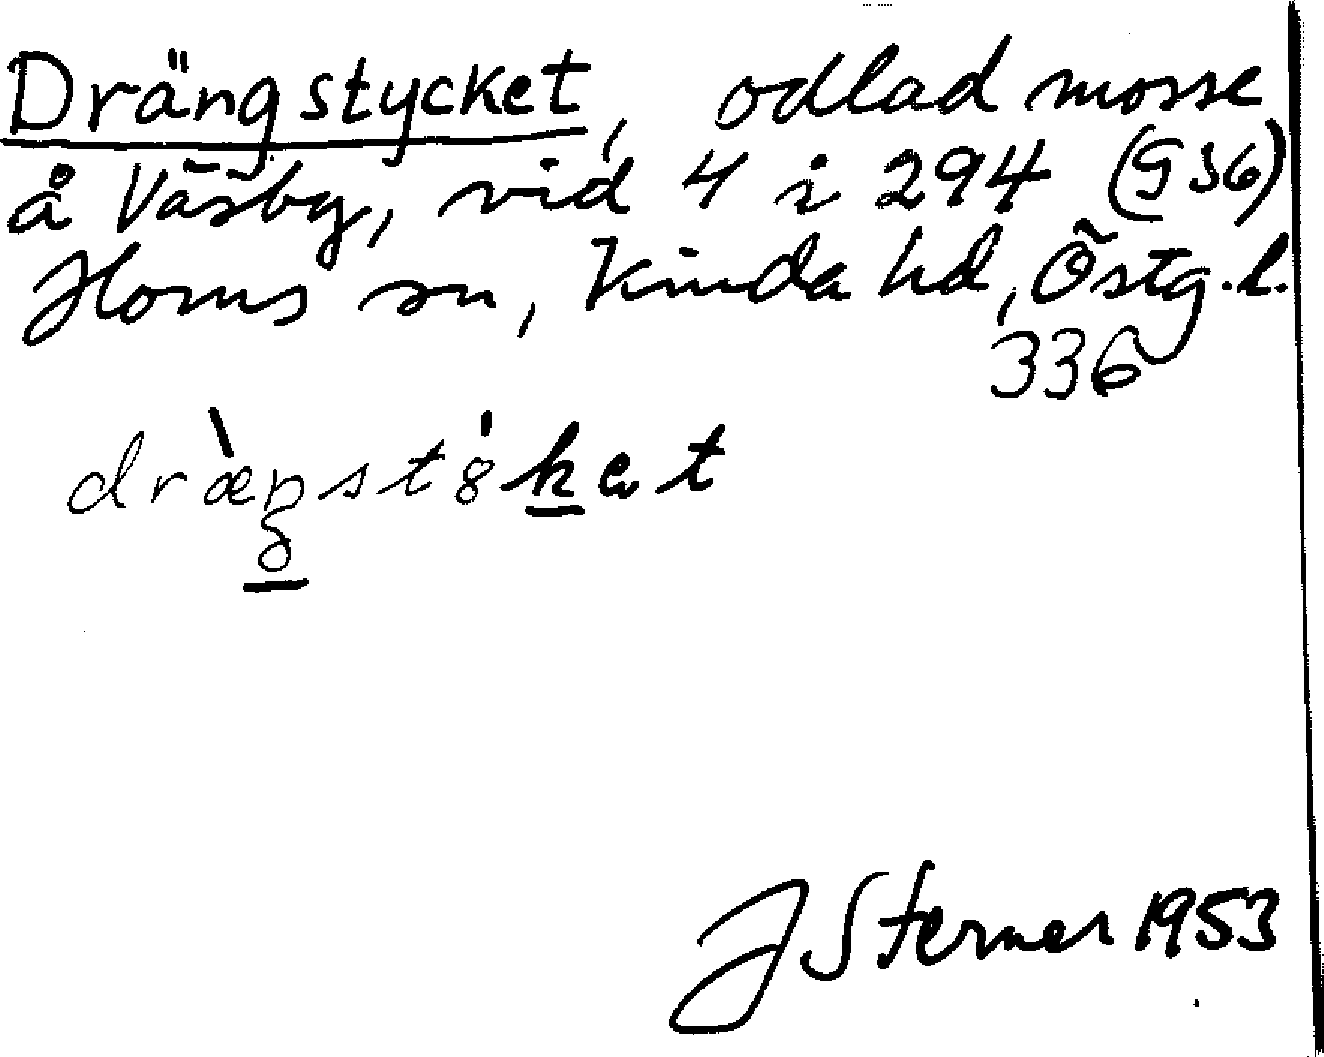 Drängstycket, odlad mosse
å Väsby, vid 4 i 294 (G 36)
Horns sn, Kinda hd, Östg.l.
336
J Sterner 1953